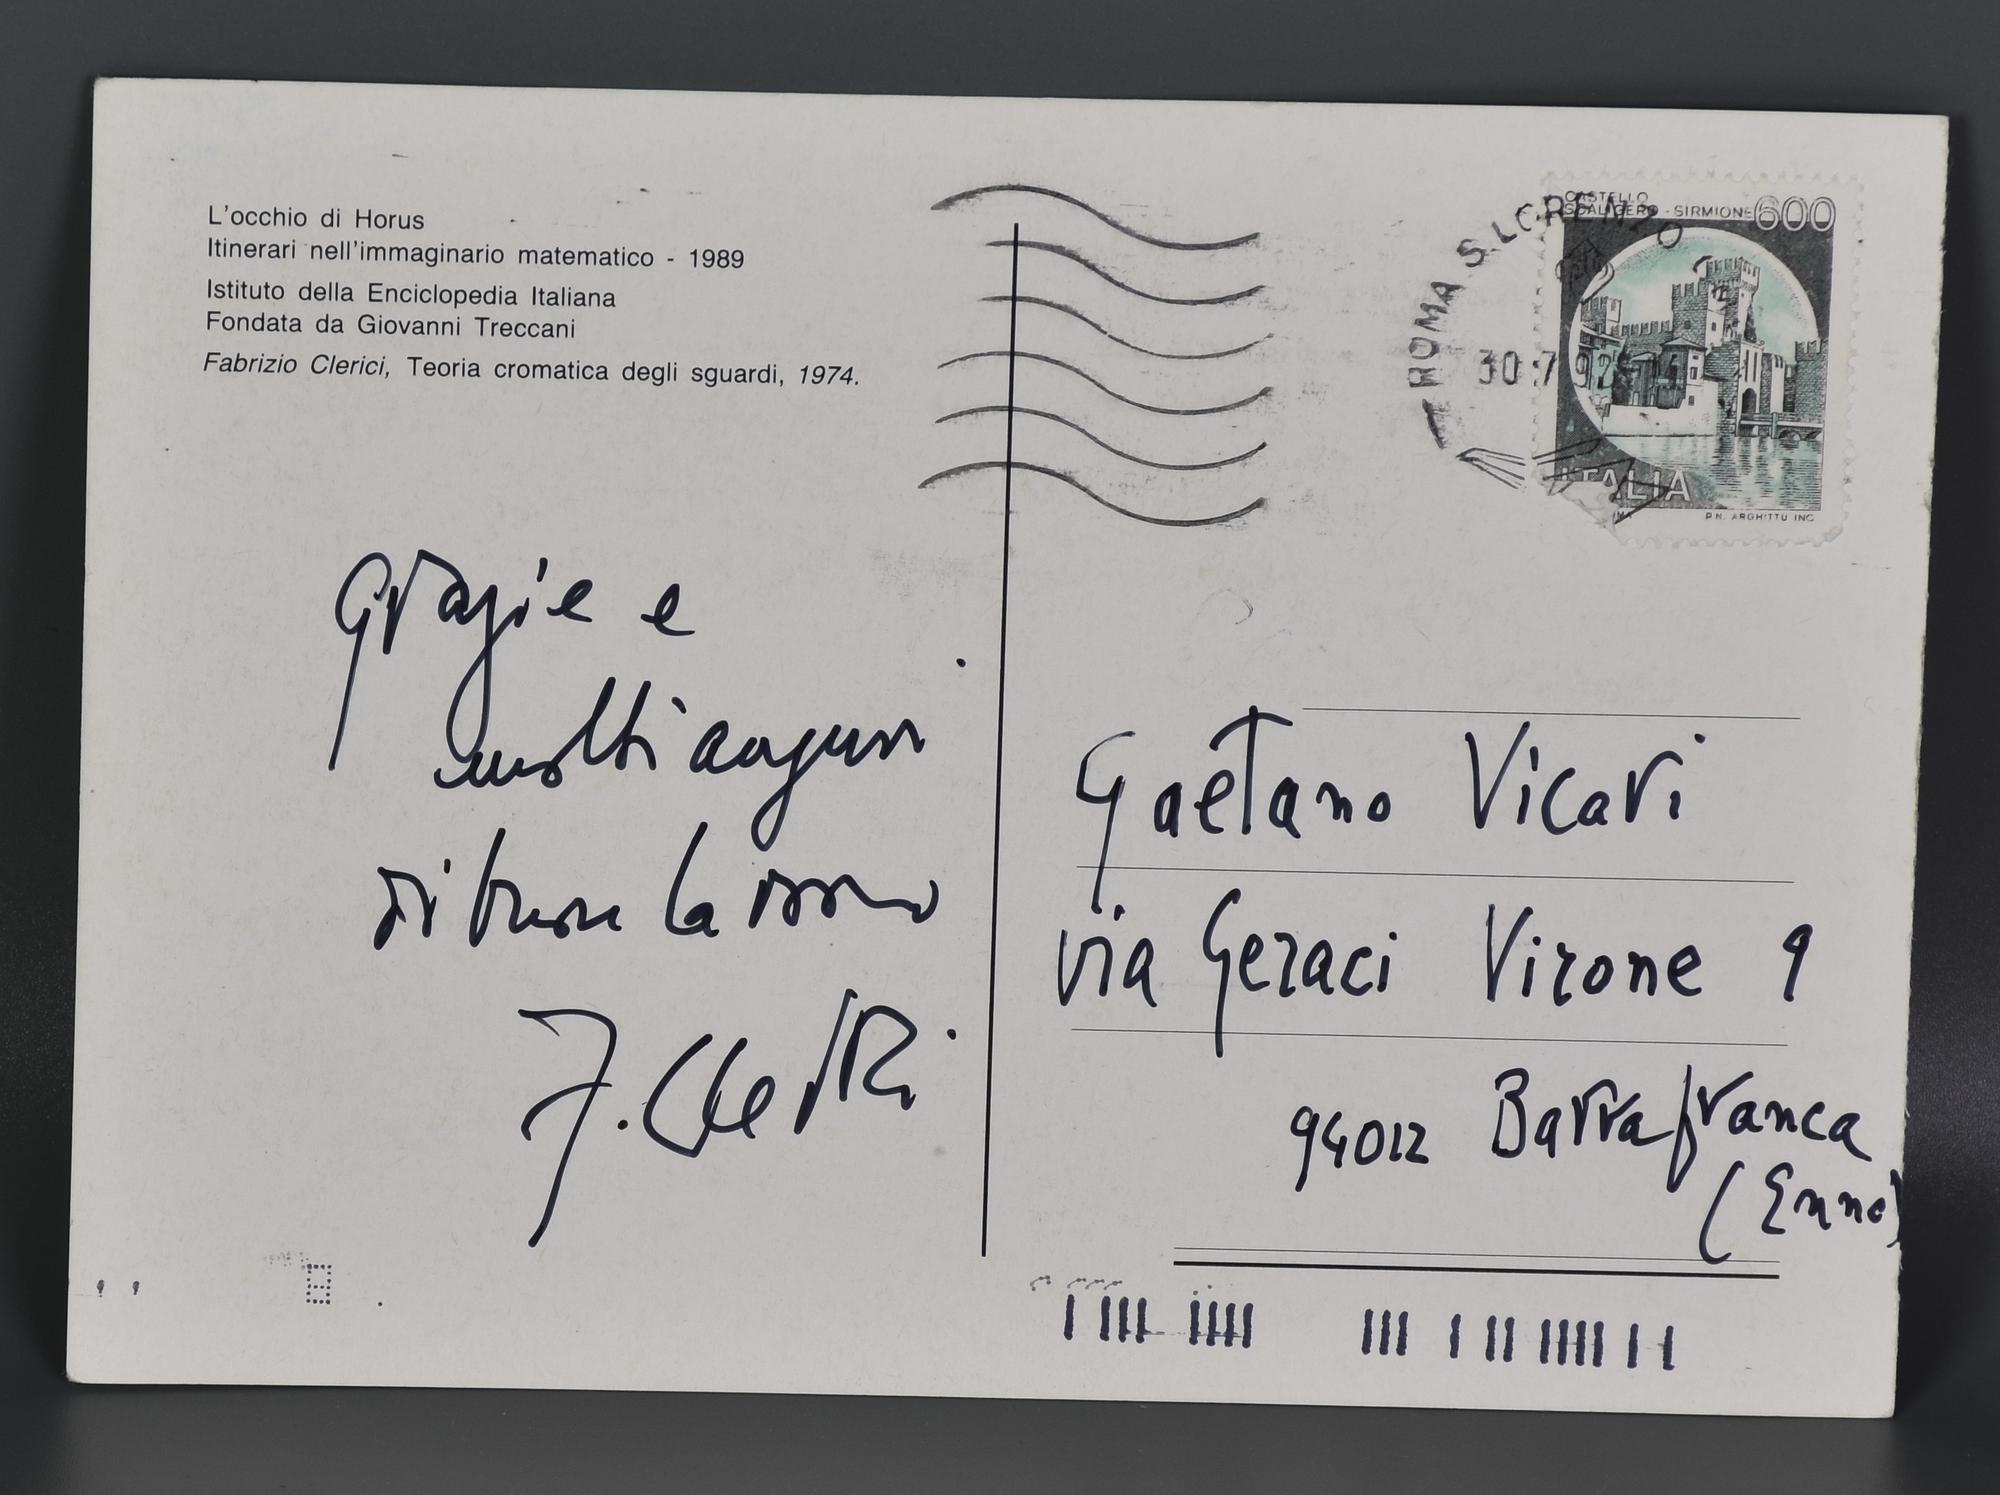 L'occhio di Horus
Itinerari nell'immaginario matematico - 1989
Istituto della Enciclopedia Italiana
Fondata da Giovanni Treccani
Fabrizio Clerici, Teoria cromatica degli sguardi, 1974.
grazie e
molti auguri
di buon lavoro
F. Clerici
CASTELLO
SCALIGERO - SIRMIONE 600
ITALIA
P.N. ARGHITTU INC
ROMA S.LORENZO
30.7
Gaetano Vicari
via Geraci Virone 9
94012 Barrafranca
(Enna)